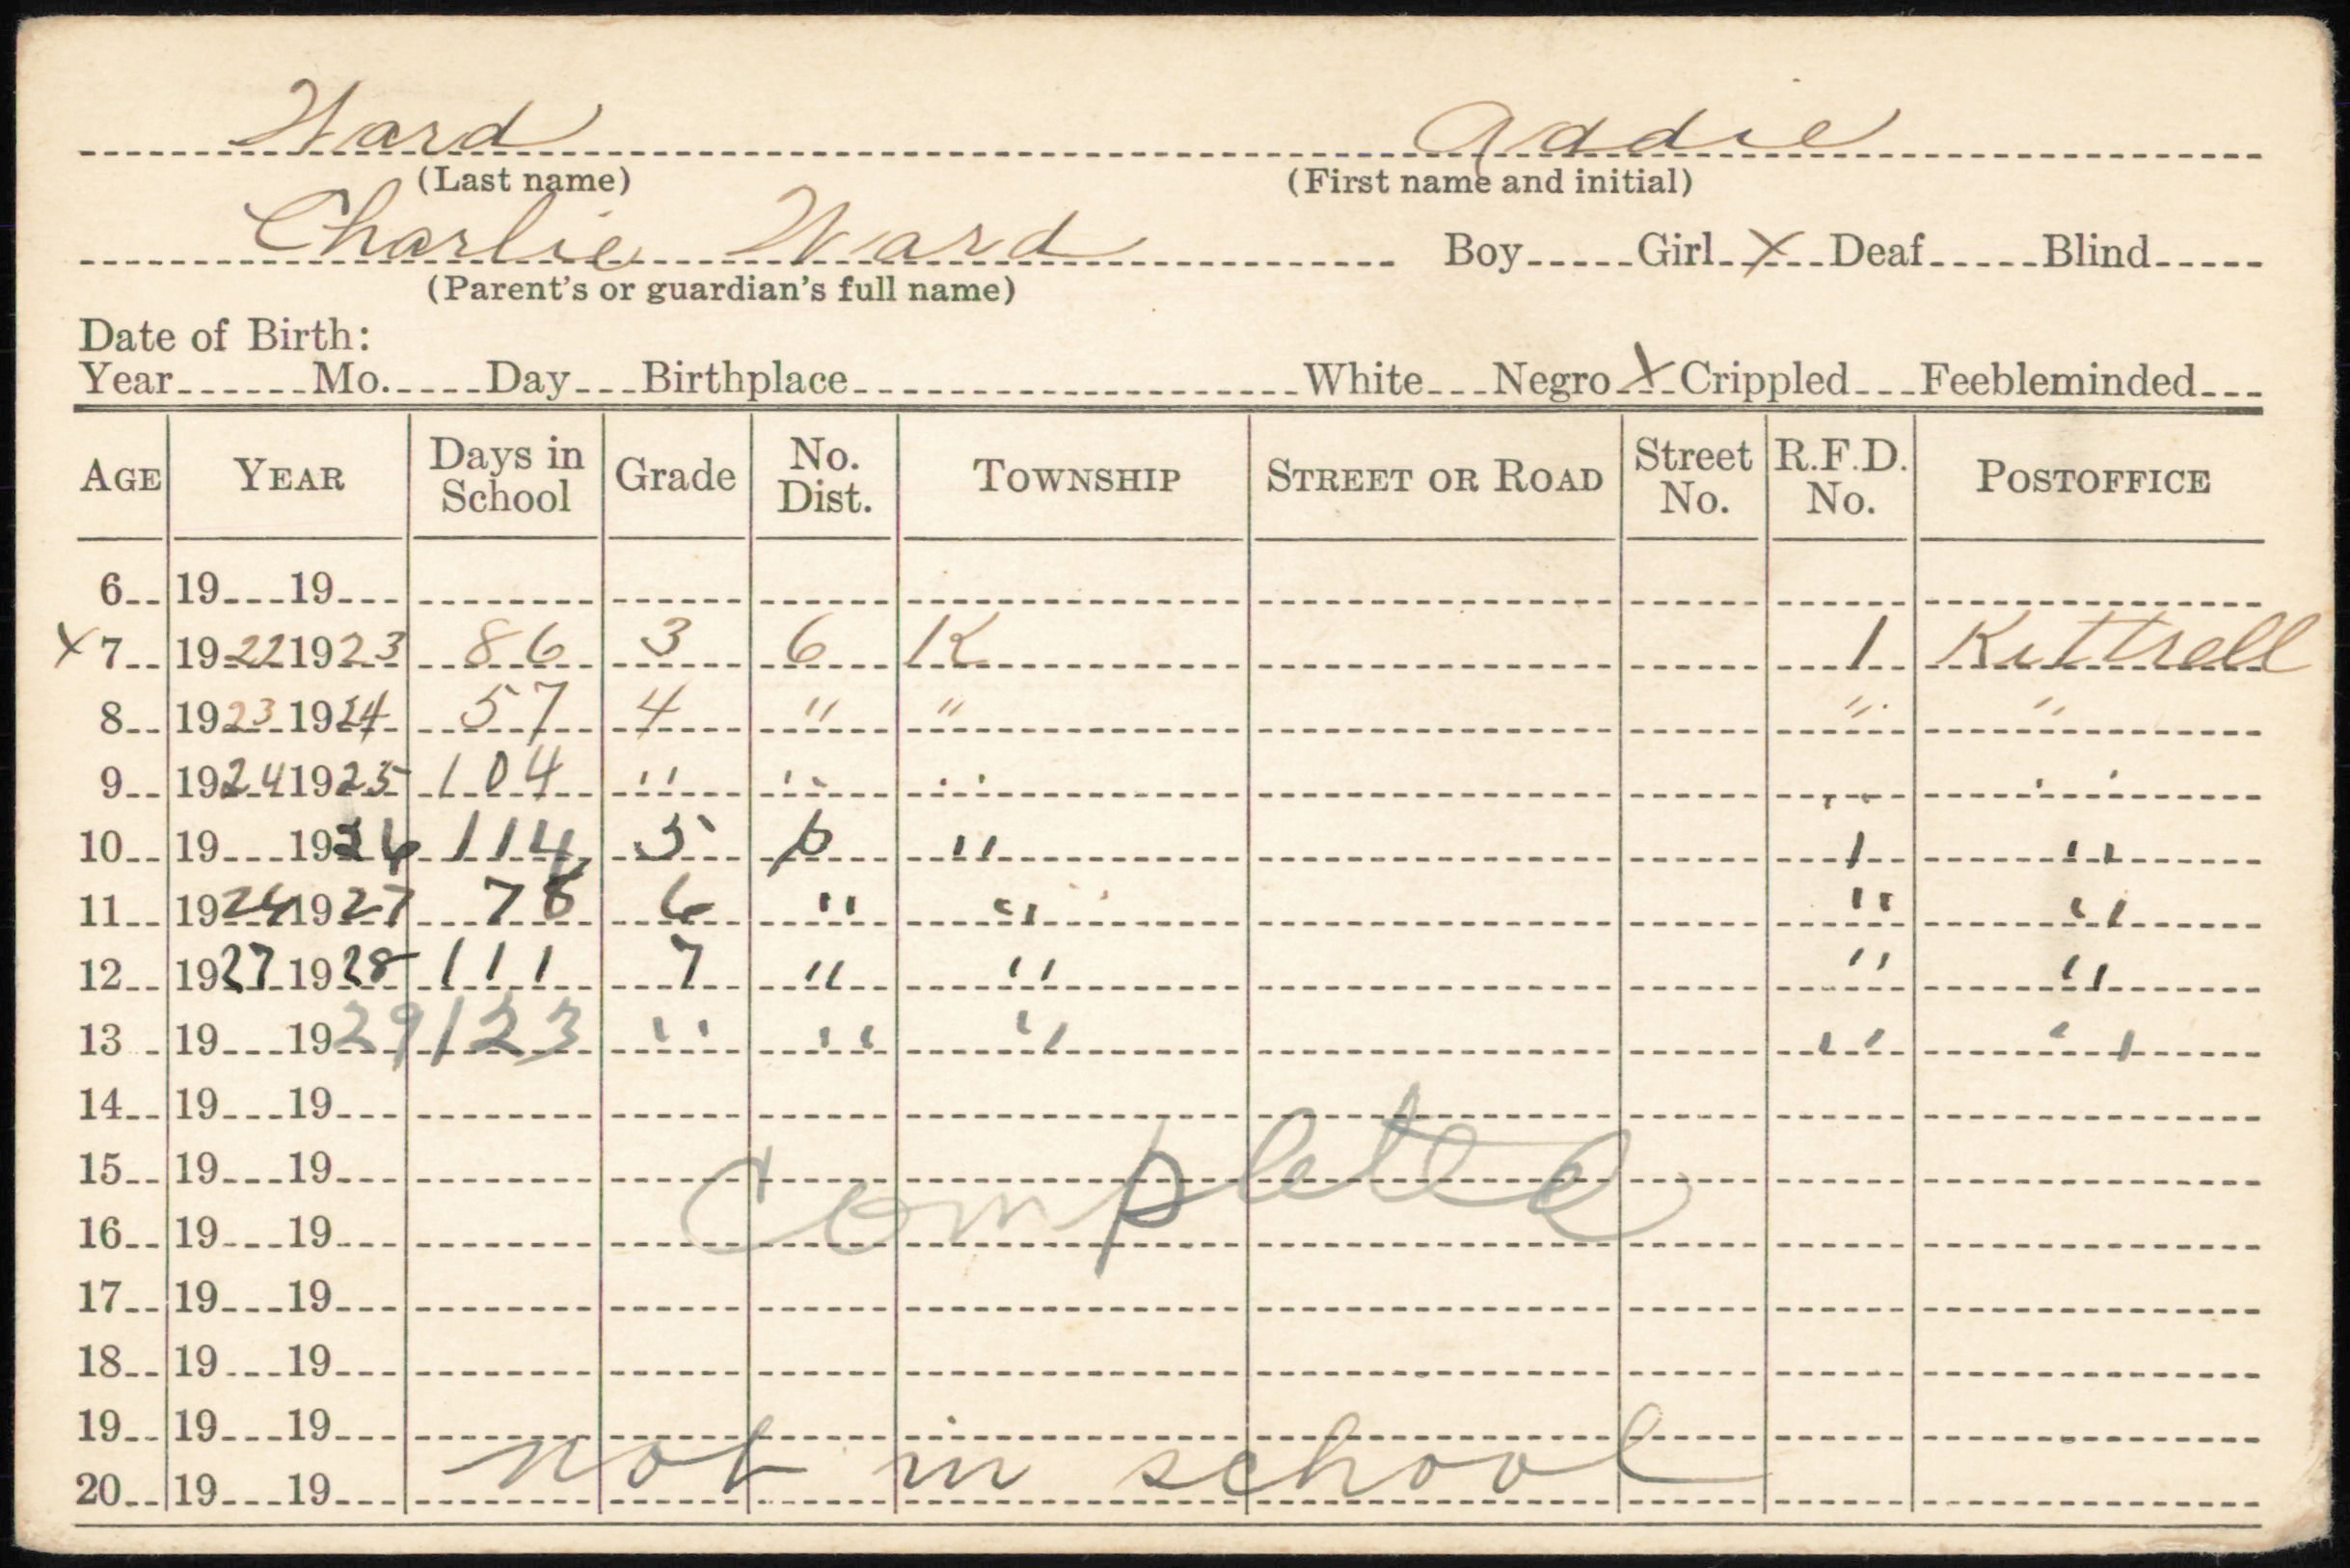 Ward Addie
(Last name) (First name and initial)
Charlie Ward Boy Girl X Deaf Blind
(Parent's or guardian's full name)
Date of Birth:
Year Mo. Day Birthplace White Negro X Crippled Feebleminded
AGE YEAR Days in School Grade No. Dist. TOWNSHIP STREET OR ROAD Street No. R.F.D. No. POSTOFFICE
6 19 19
X 7 1922 1923 86 3 6 K 1 Kittrell
8 1923 1924 57 4 " " " "
9 1924 1925 104 " " " " "
10 19 1926 114 5 6 " 1 "
11 1926 1927 78 6 " " " "
12 1927 1928 111 7 " " " "
13 19 1929 123 " " " " "
14 19 19
15 19 19
Completed
16 19 19
17 19 19
18 19 19
19 19 19
not in school
20 19 19